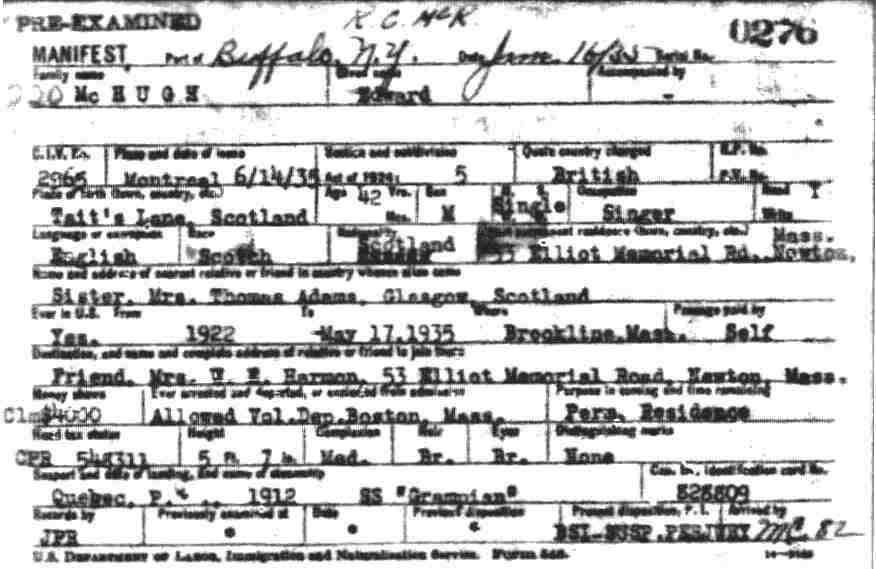 PRE-EXAMINED R. C. McK.
0276
MANIFEST Port of Buffalo, N.Y. Date June 16/35 Serial No.
Family name Given name Accompanied by
Mc HUGH Edward -
C.I.V. No. Place and date of issue Section and subdivision Quota country charged R.P. No.
2965 Montreal 6/14/35 Act of 1924: 5 British P.V. No.
Place of birth (town, country, etc.) Age 42 Yrs. Sex M. S. Occupation Read Y
Tait's Lane, Scotland Mos. M Single Singer Write
Language or exemption Race Nationality Last permanent residence (town, country, etc.) Mass.
English Scotch Scotland 53 Elliot Memorial Rd., Newton,
Name and address of nearest relative or friend in country whence alien came
Sister, Mrs. Thomas Adams, Glasgow, Scotland
Ever in U.S. From To Where Passage paid by
Yes. 1922 May 17,1935 Brookline,Mass. Self
Destination, and name and complete address of relative or friend to join there
Friend, Mrs. W. E. Harmon, 53 Elliot Memorial Road, Newton, Mass.
Money shown Ever arrested and deported, or excluded from admission Purpose in coming and time remaining
Clms$4000 Allowed Vol.Dep.Boston, Mass. Perm. Residence
Head tax status Height Complexion Hair Eyes Distinguishing marks
CPR 548311 5 ft. 7 in. Med. Br. Br. None
Seaport and date of landing, and name of steamship Can. Im. Identification card No.
Quebec, P. 1912 SS "Grampian" 828809
Records by Previously examined at Date Previous disposition Present disposition, P. I. Arrived by
JPR * * * BSI-SUSP.PERJURY MC. 82
U.S. DEPARTMENT OF LABOR, Immigration and Naturalization Service. FORM 548.